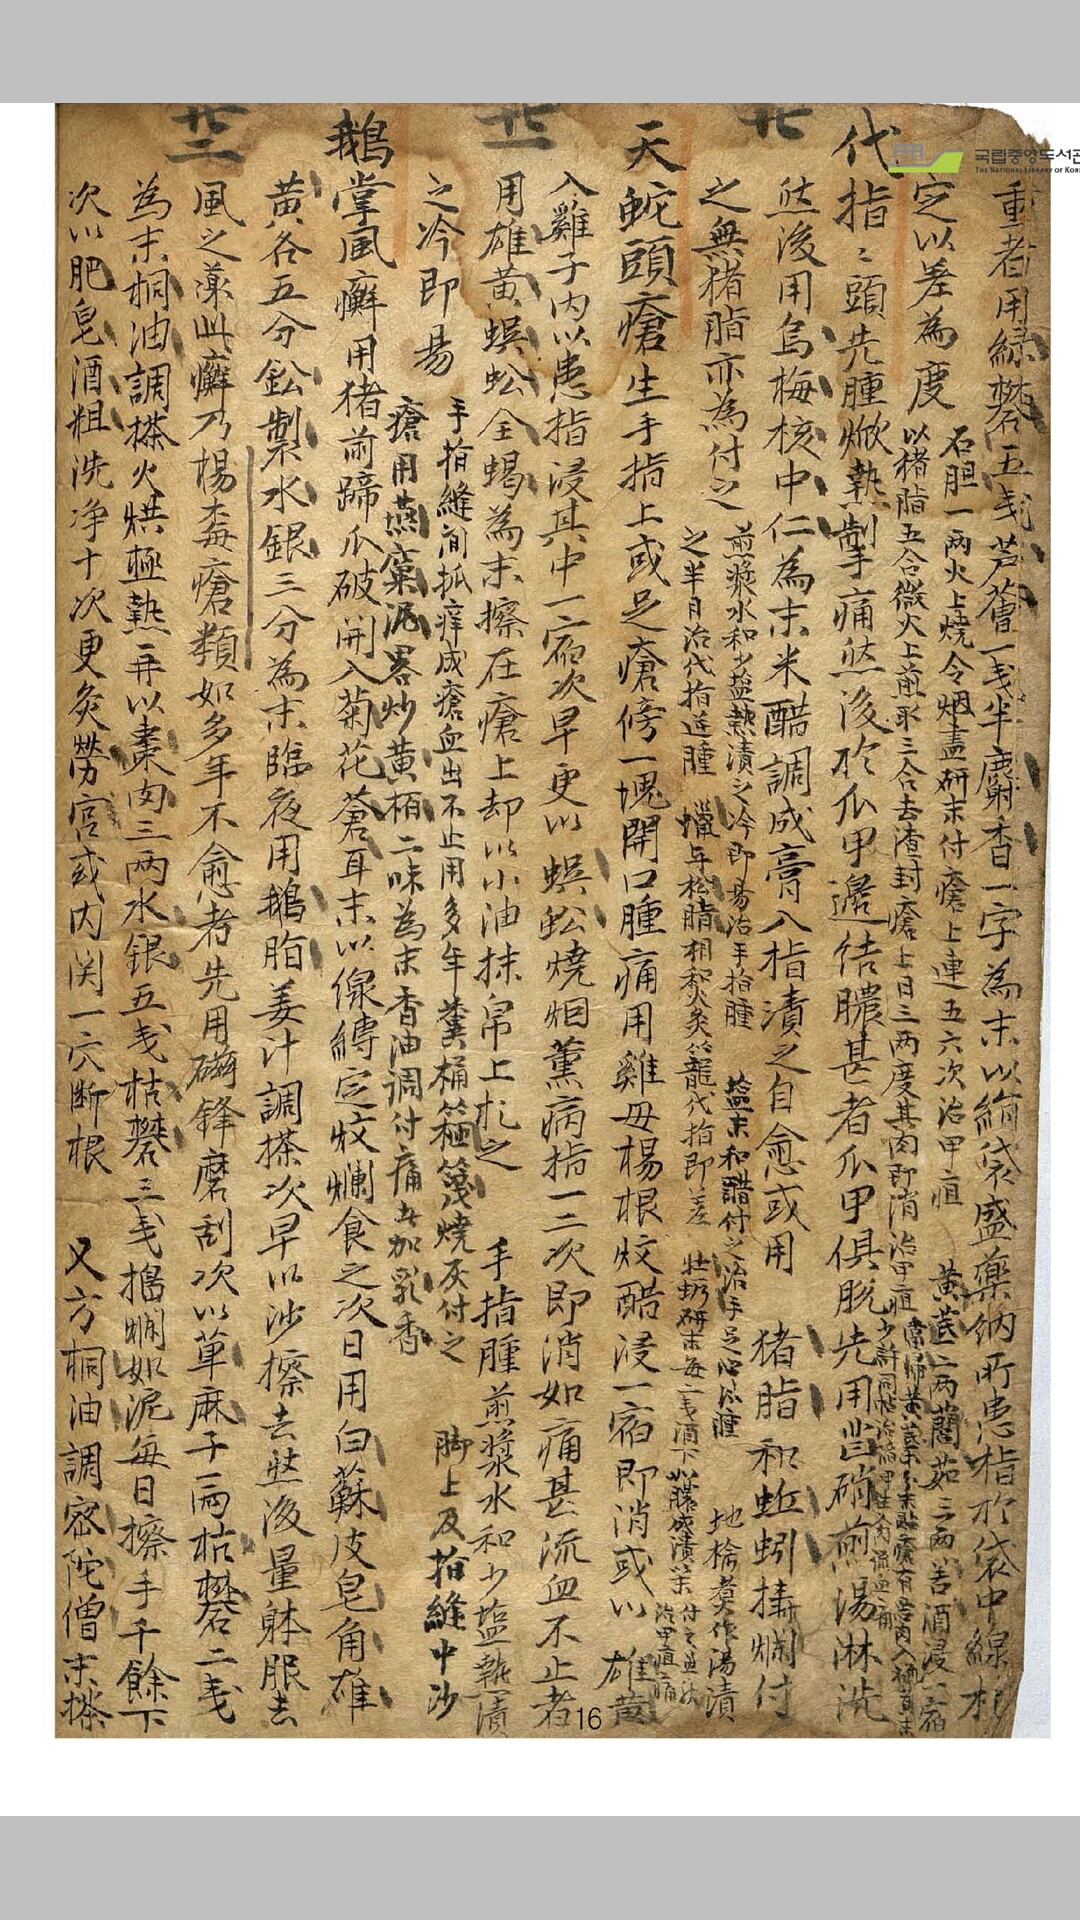 重者用綠礬五戔芦薈一戔半麝香一字為末以絹袋盛藥納所患指於袋中線扎
定以差為度
石胆一两火上燒令烟盡研末付瘡上連五六次治甲疽
黄芪二两藺茹三两苦酒浸一宿
以猪脂五合微火上煎取三合去渣封瘡上日三两度其肉即消治甲疽
代指
指〻頭先腫焮熱掣痛然後於爪甲邊结膿甚者爪甲俱脫先用芒硝煎湯淋洗
然後用烏梅核中仁為末米醋調成膏入指漬之自愈或用
猪脂和蚯蚓擣爛付
之無猪脂亦為付之
煎漿水和少盐熱漬之冷即易治手指腫
盐末和醋付之治手足心坛腫
地榆煑作湯漬
之半日治代指逆腫
蠟与松脂相和火炙籠代指即差
牡蛎研末每二戔酒下
天蛇頭瘡生手指上或足瘡傍一塊開口腫痛用雞母楊根炆醋浸一宿即消或以
雄黄
入雞子内以患指浸其中一宿次早更以蜈蚣燒烟薰病指一二次即消如痛甚流血不止者
用雄黄蜈蚣全蝎為末擦在瘡上却以小油抹帛上扎之
手指腫煎漿水和少盐熱漬
之冷即易
手指縫间抓痒成瘡血出不止用多年糞桶箍篾燒灰付之
脚上及指縫中沙
瘡用燕窠泥畧炒黄栢二味為末香油調付痛者加乳香
鵝掌風癬用猪前蹄爪破開入菊花蒼耳末以線縛定炆爛食之次日用白蘇皮皂角雄
黄各五分鉛製水銀三分為末臨夜用鵝脂姜汁調搽次早以沙擦去然後量躰服去
風之藥此癬乃楊梅瘡類如多年不愈者先用磁鋒磨刮次以萆麻子一两枯礬二戔
為末桐油調搽火烘極熱再以棗肉三两水銀五戔枯礬三戔搗爛如泥每日擦手千餘下
次以肥皂酒粗洗净十次更灸勞宮或内関一穴断根
又方桐油調密陀僧末搽
廿
廿二
廿三
국립중앙도서관
THE NATIONAL LIBRARY OF KOREA
16